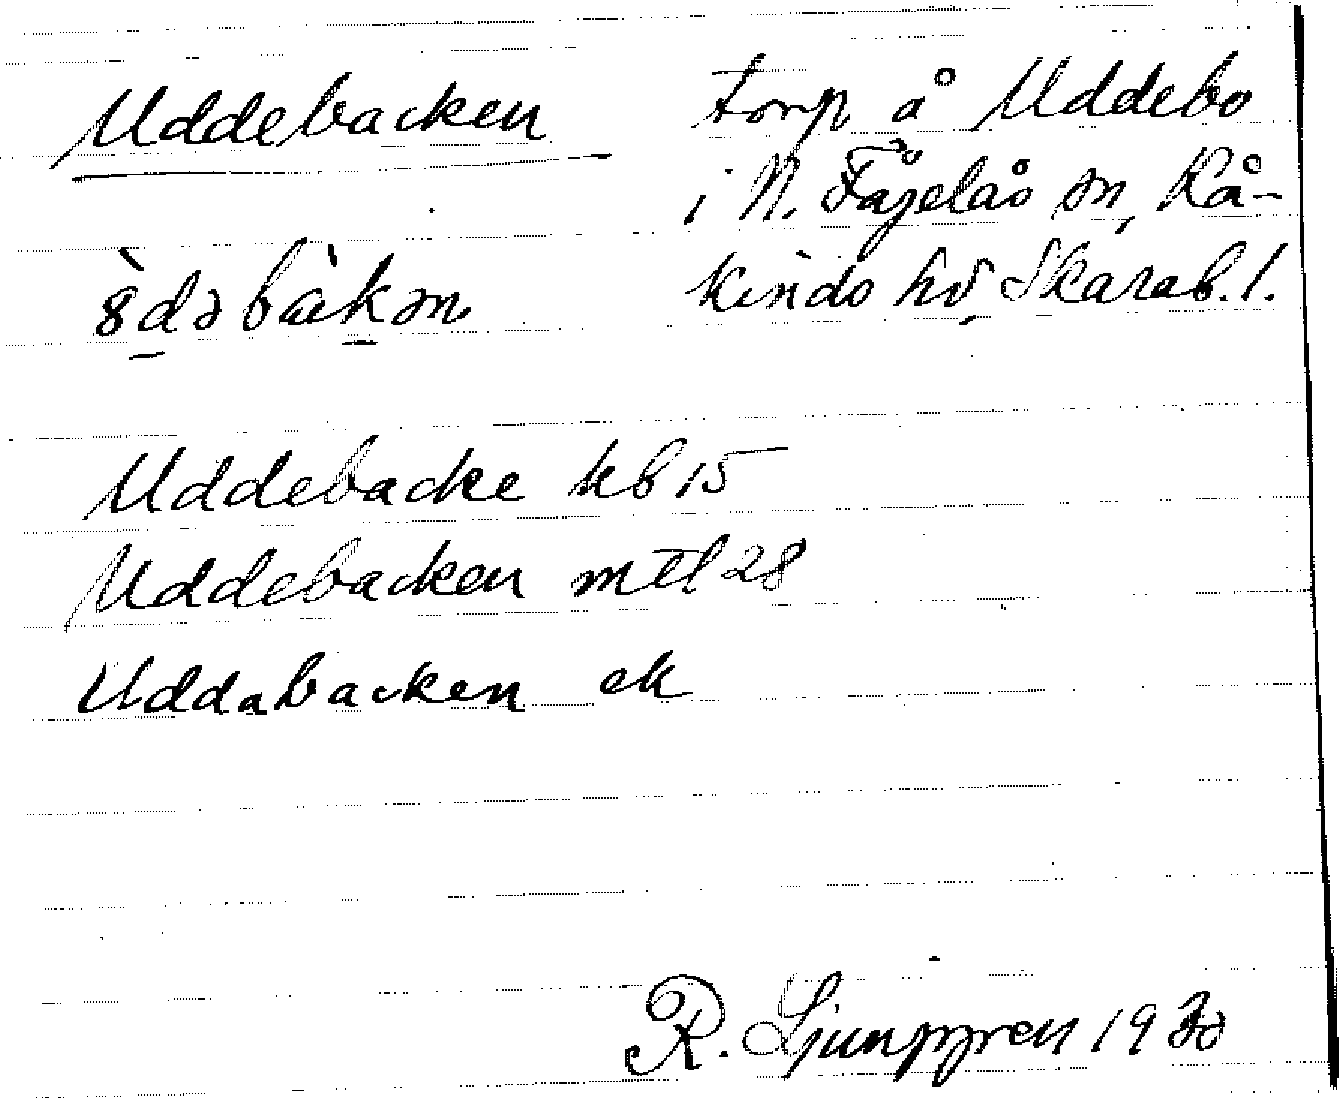 Uddebacken torp å Uddebo
i N. Fågelås sn, Kå-
kinds hd, Skarab. l.
Uddebacke kb 15
Uddebacken mtl 28
Uddabacken ek
R. Ljunggren 1930